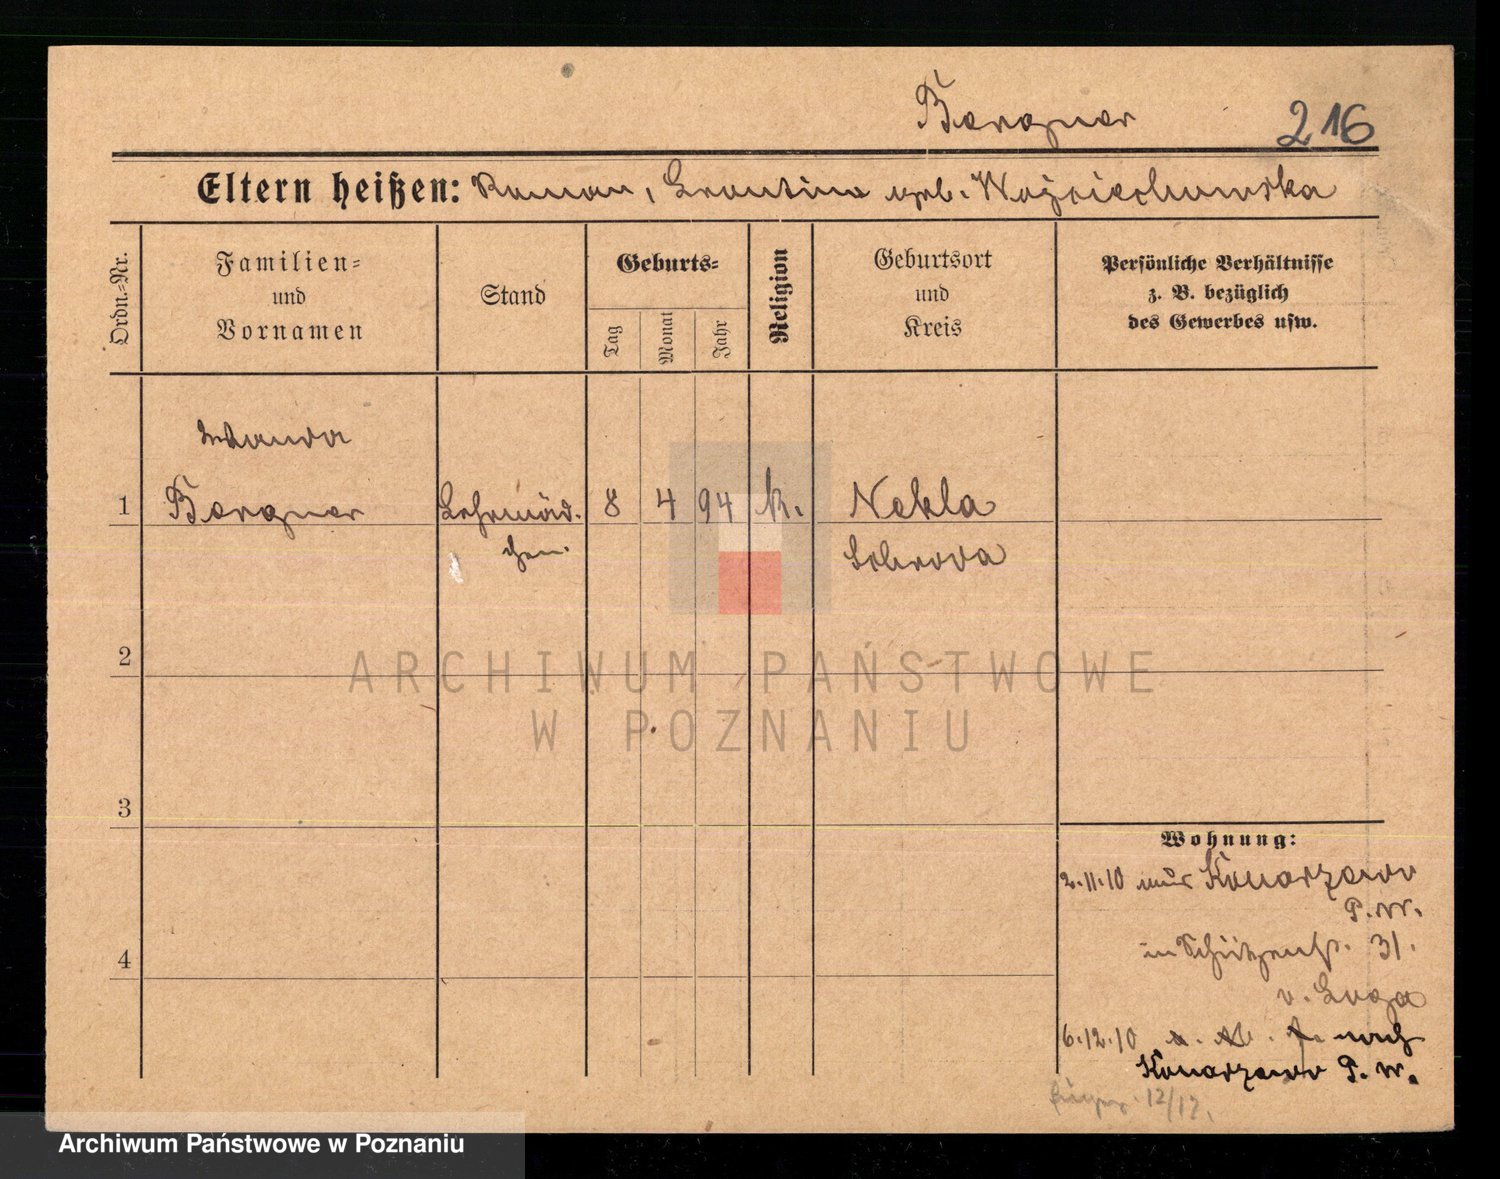 Bergner 216
Eltern heißen: Roman, Leontine geb. Wojciechowska
Ordn.-Nr.
Familien-
und
Vornamen
Stand
Geburts-
Tag
Monat
Jahr
Religion
Geburtsort
und
Kreis
Persönliche Verhältnisse
z. B. bezüglich
des Gewerbes usw.
Wanda
1 Bergner Lehrmäd- 8 4 94 k. Nekla
chen. Schroda
2
ARCHIWUM PAŃSTWOWE
W POZNANIU
3
Wohnung:
2.11.10 aus Konarzewo
P. W.
4
in Schützenstr. 31.
b. Loga
6.12.10 nach
Konarzewo P. W.
12/12.
Archiwum Państwowe w Poznaniu